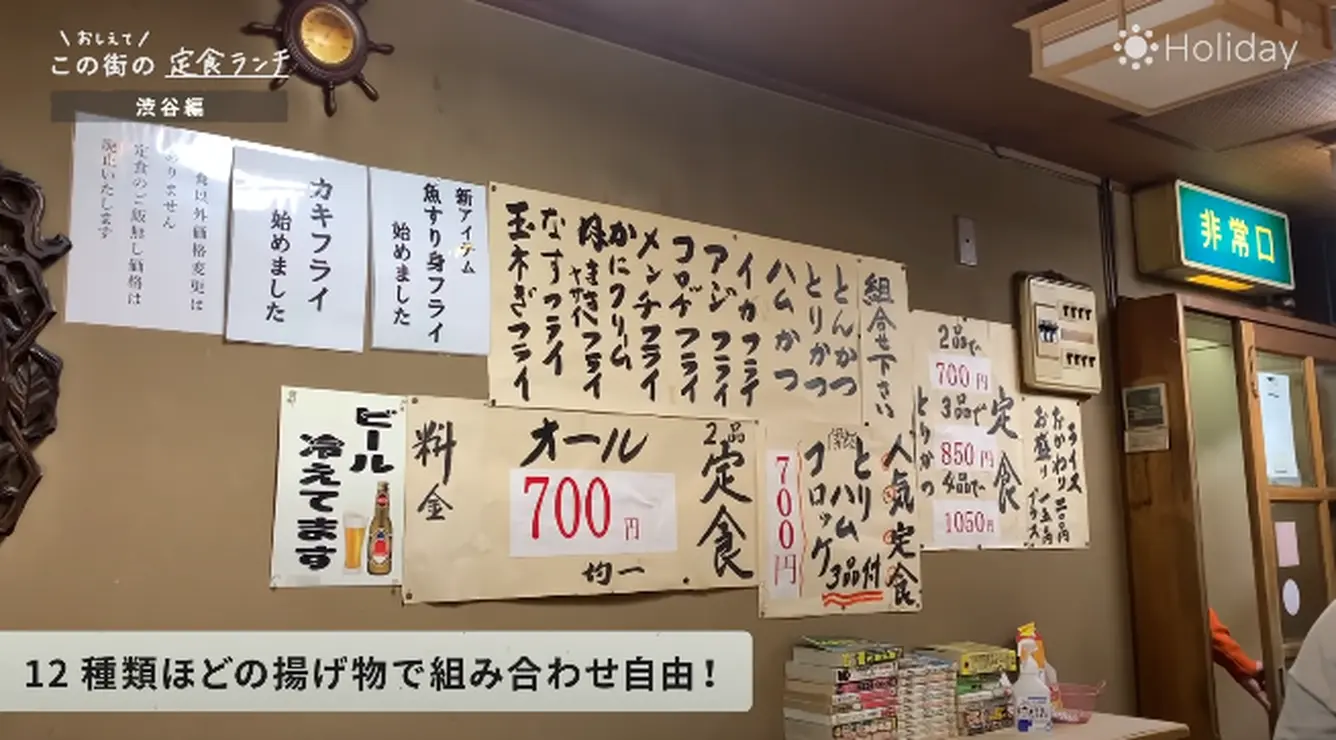 \ おしえて /
この街の 定食ランチ
渋谷編
Holiday
食以外価格変更は
ありません
定食のご飯無し価格は
廃止いたします
カキフライ
始めました
新アイテム
魚すり身フライ
始めました
組合せ下さい
とんかつ
とりかつ
ハムかつ
イカフライ
アジフライ
コロッケフライ
メンチフライ
かにクリーム
なすフライ
玉ネぎフライ
2品で
700円
定食
3品で
850円
4品で
1050円
とりかつ
ライス
おかわり
お盛り
非常口
ビール
冷えてます
2品
定食
オール
700円
均一
料金
人気定食
とり
ハム
コロッケ
3品付
700円
12種類ほどの揚げ物で組み合わせ自由！